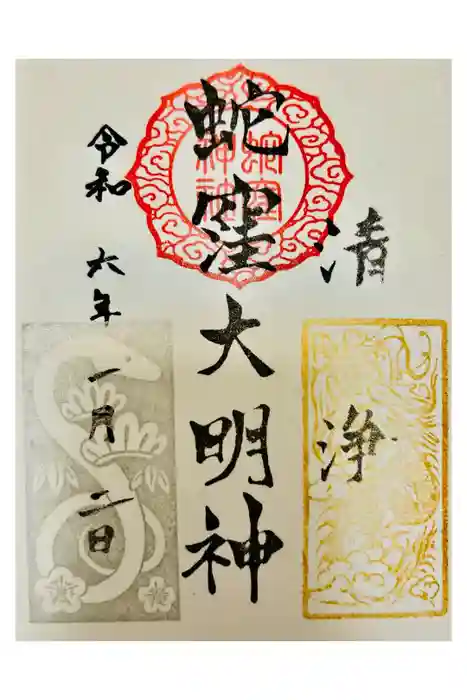 清浄
蛇窪大明神
蛇窪神社
令和六年一月二日